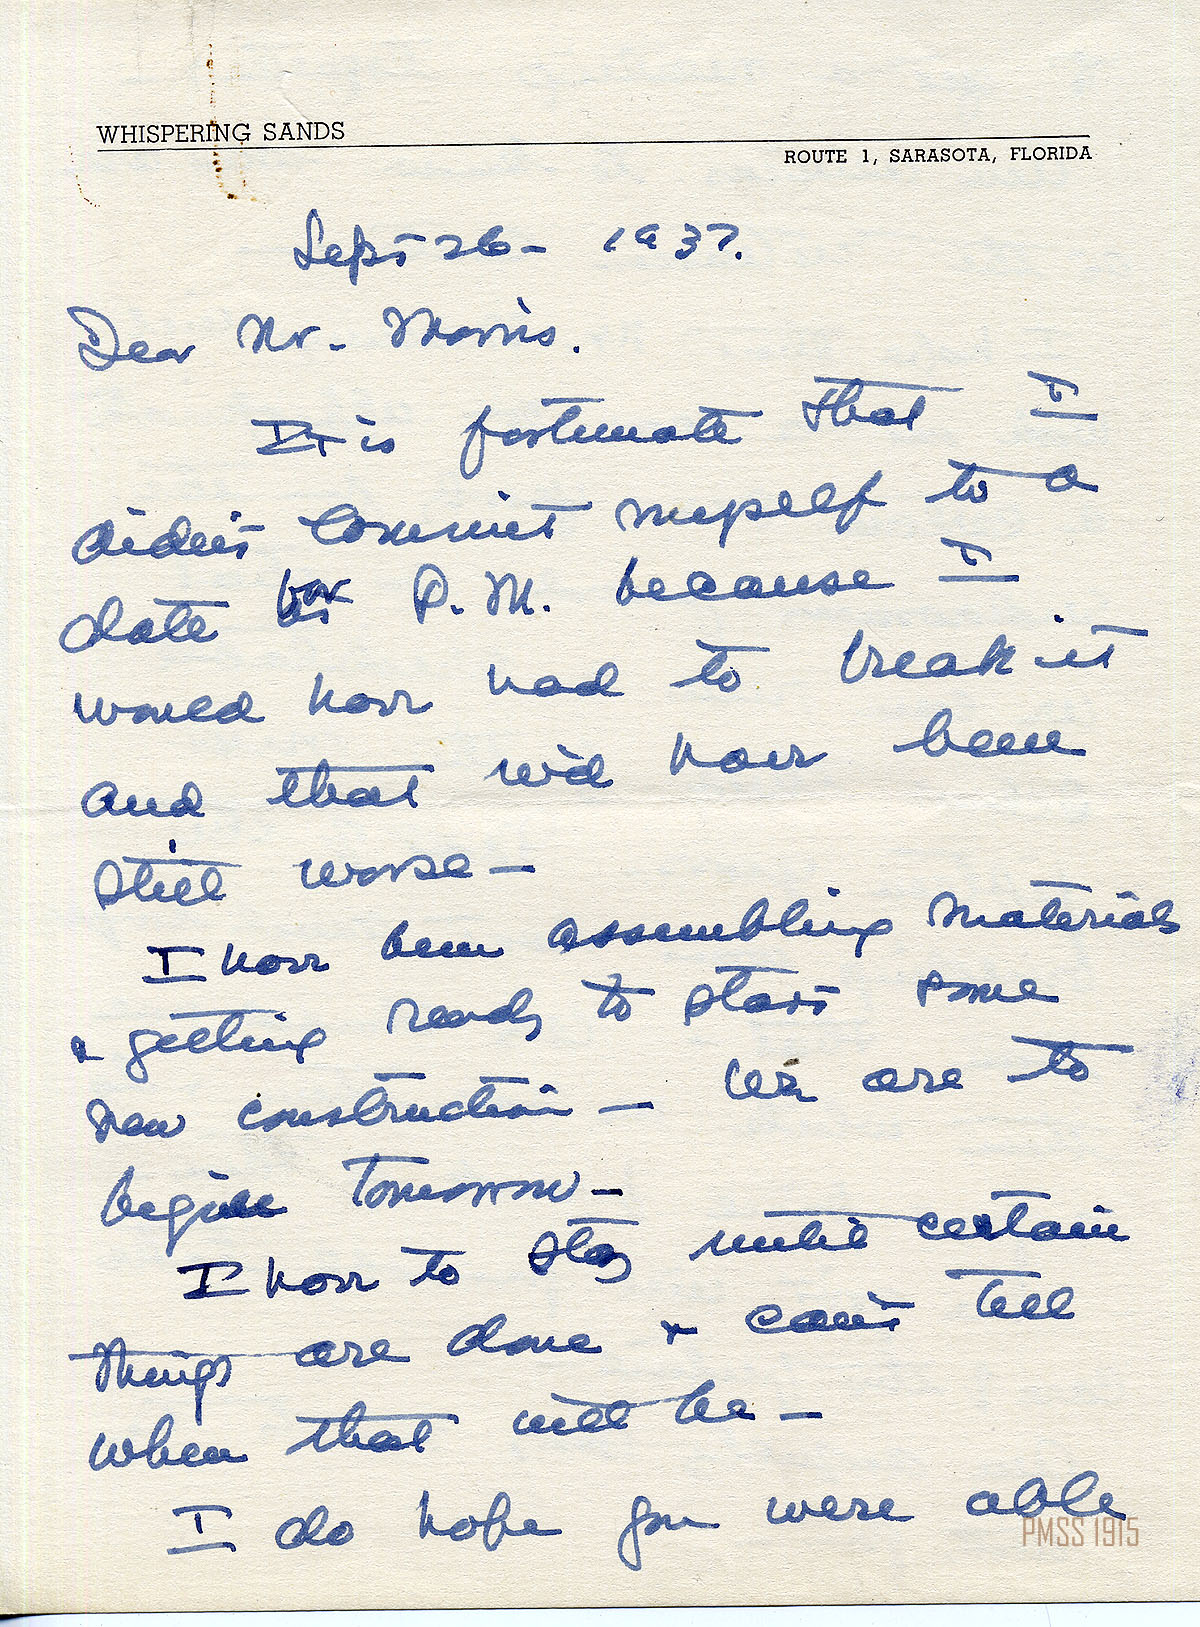 WHISPERING SANDS
ROUTE 1, SARASOTA, FLORIDA
Sept 26 - 1937.
Dear Mr. Morris.
It is fortunate that I
didn't commit myself to a
date for P.M. because I
would have had to break it
and that w'd have been
still worse —
I have been assembling materials
& getting ready to start some
new construction — We are to
begin tomorrow —
I have to stay until certain
things are done & can't tell
when that will be —
I do hope you were able
PMSS 1915